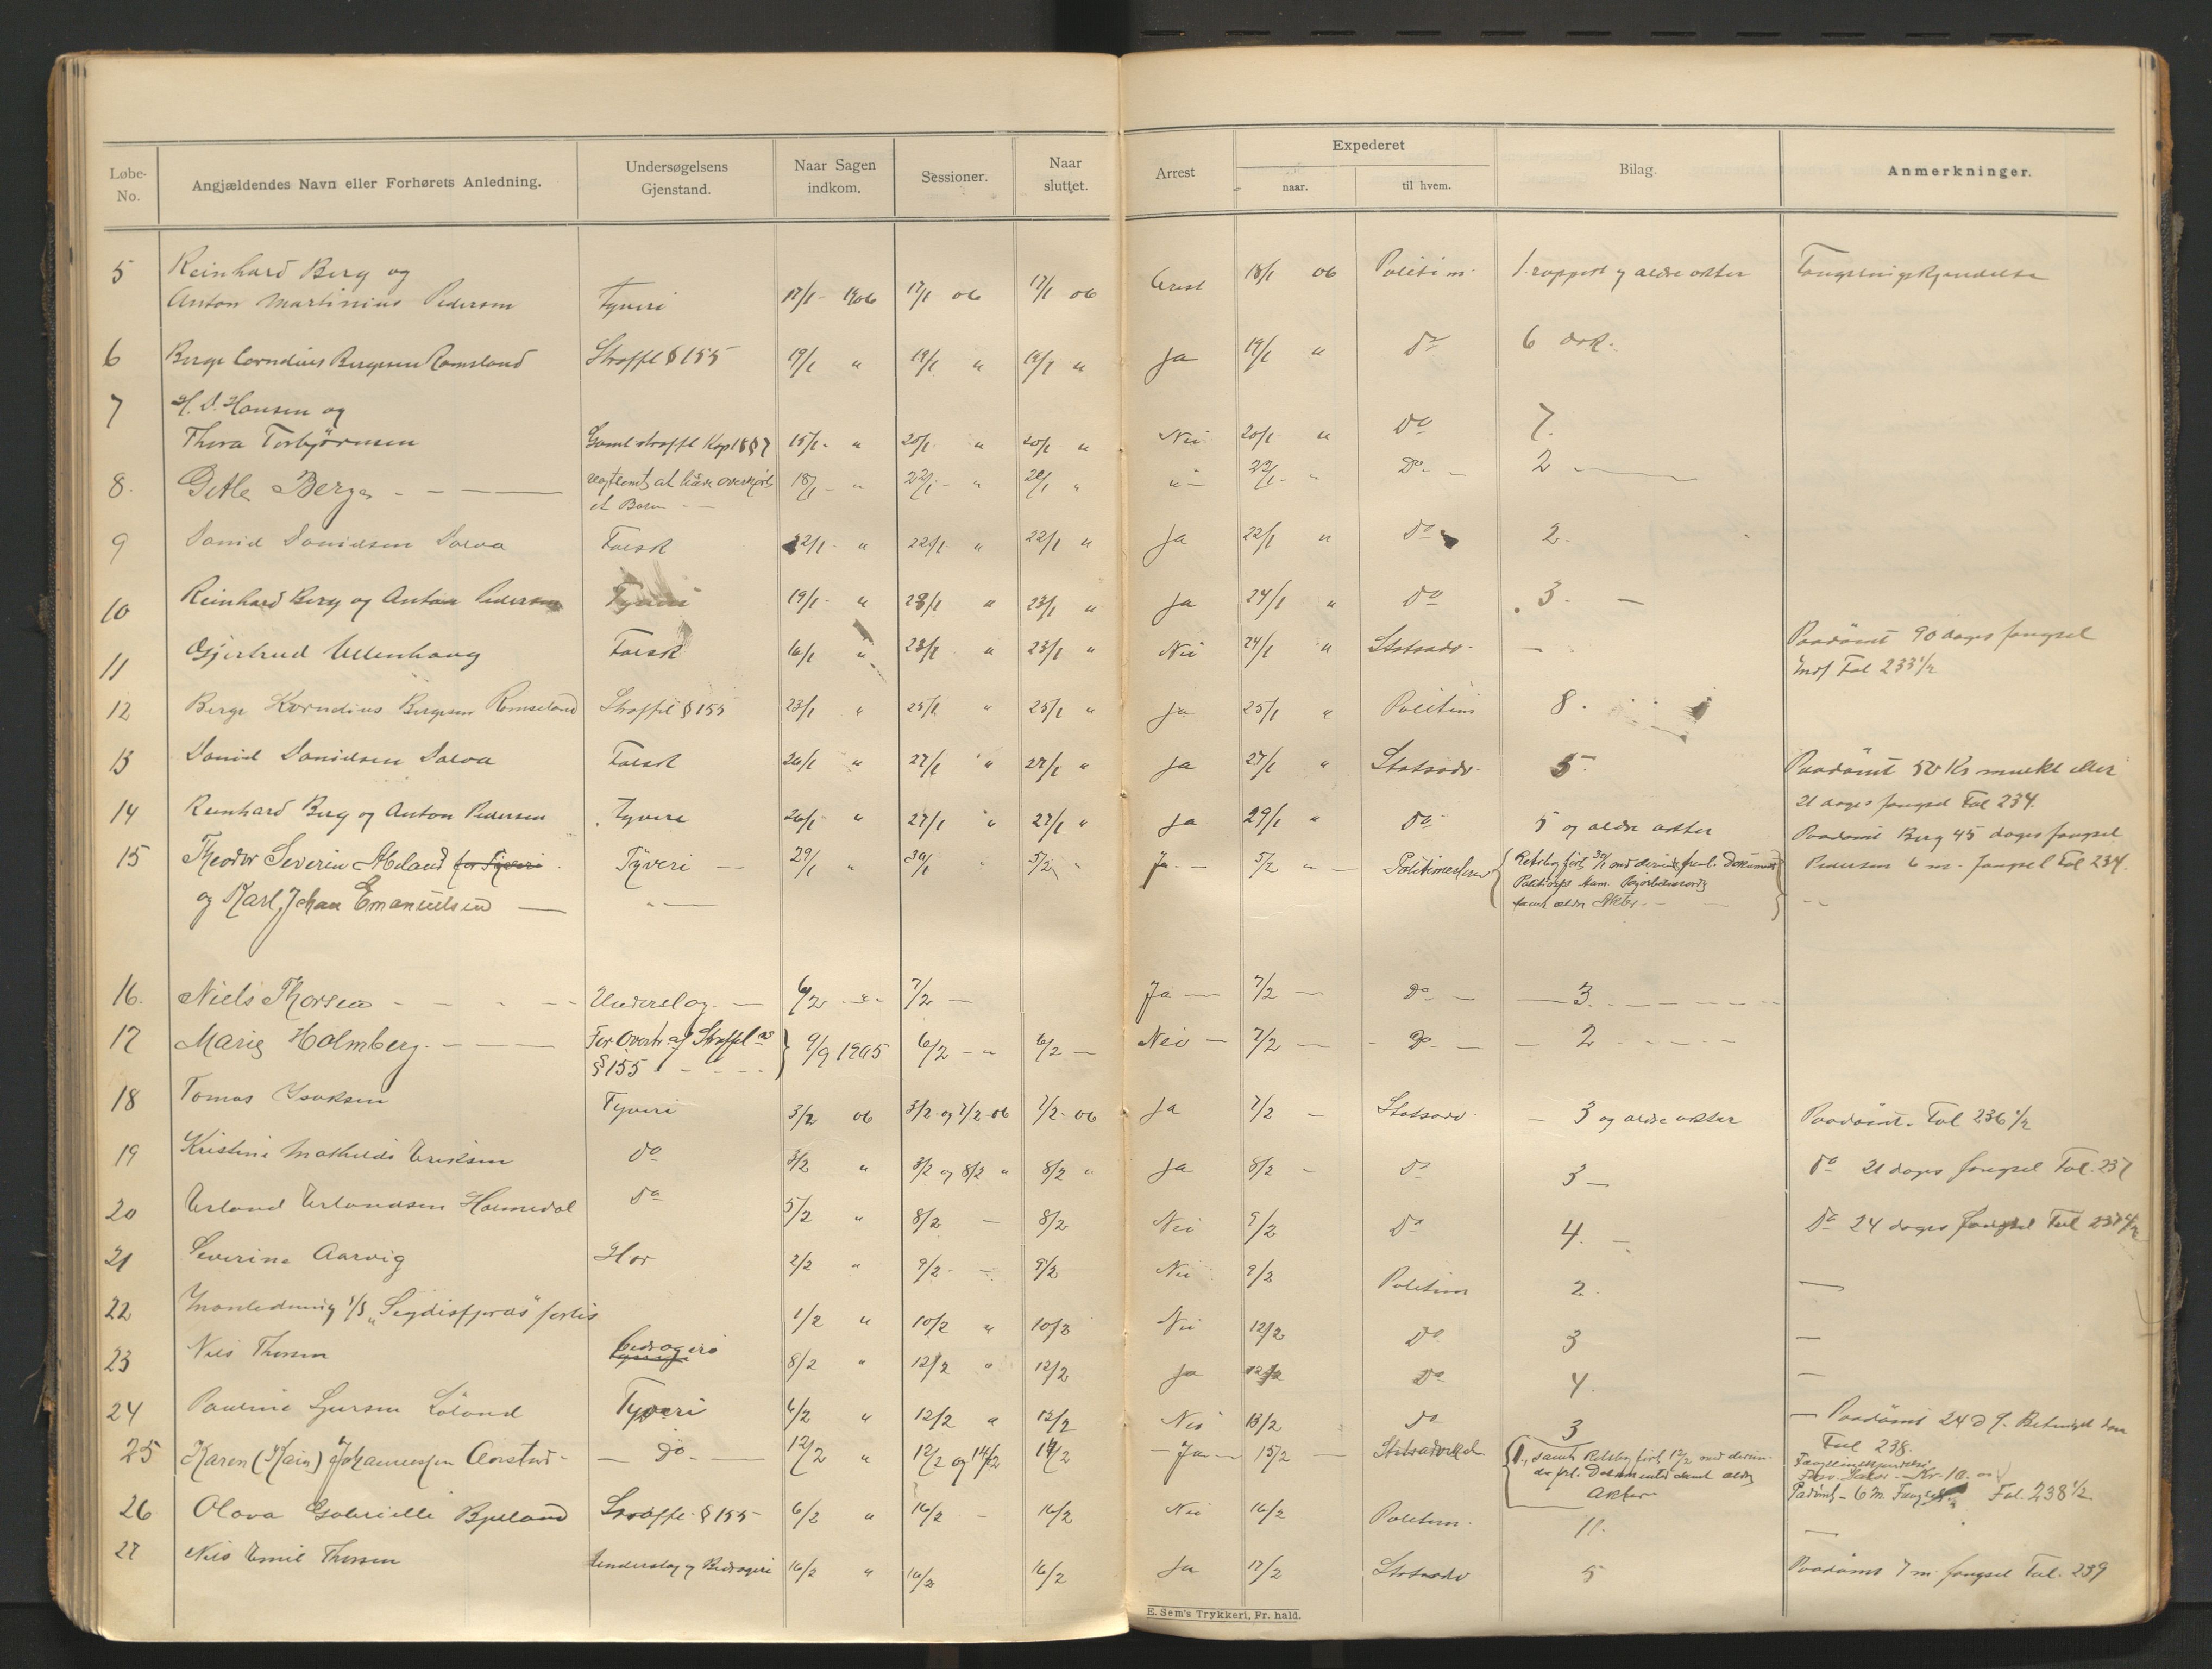 Løbe-No. Angjældendes Navn eller Forhørets Anledning. Undersøgelsens Gjenstand. Naar Sagen indkom. Sessioner. Naar sluttet. Arrest Expederet naar. til hvem. Bilag. Anmerkninger.
5 Reinhard Berg og
Anton Martinius Pedersen Tyveri 17/1 - 1906 17/1 06 17/1 06 Arest 18/1 06 Politim. 1 rapport og aldre akter Fængslingskjendelse
6 Berge Cornelius Bergesen Romsland Straffl § 155 19/1 " 19/1 " 19/1 " Ja 19/1 " Do 6
7 H. D. Hansen og
Thora Torbjörnsen Gaml straffl Kap 18 § 7 15/1 - " 20/1 " 20/1 " Nei 20/1 " Do 7.
8. Ditle Berge - - - at have overkjørt et Barn 18/1 - " 22/1 - " " " - 22/1 - " Do - 2
9 Danid Danielsen Salva Falsk 22/1 - " 22/1 - " 22/1 " Ja 22/1 " Do 2.
10 Reinhard Berg og Anton Pedersen Tyveri 19/1 - " 23/1 " 23/1 " Ja 24/1 " Do 3. -
11 Gjertrud Ullenhaug Falsk 16/1 " 23/1 " 23/1 " Nei 24/1 " Statsadv. - Paadömt 90 dages fængsel
Fol 233 1/2
12 Berge Kornelius Bergesen Romseland Straffl § 155 23/1 " 25/1 " 25/1 " Ja 25/1 " Politim 8.
13 Danid Danielsen Salva Falsk 26/1 " 27/1 " 27/1 " Ja 27/1 " Statsadv. 5. Paadömt 50 Kr mulkt eller
21 dages fængsel Fol 234.
14 Reinhard Berg og Anton Pedersen Tyveri 26/1 " 27/1 " 27/1 " Ja 29/1 " Do 5 og aldre akter Paadömt Berg 45 dages fængsel
15 Theodor Severin Abeland for Tyveri Tyveri - 29/1 " 30/1 " 5/2 " Ja - 5/2 " - Politimesteren Retsbog förl. 30/1 med deri freml. Dokument Pedersen 6 m. fængsel Fol 234.
og Karl Johan Emanuelsen - " - samt ældre Akter - -
16. Niels Thorsen - - - Underslag. - 6/2 - " - 7/2 - Ja - 7/2 - Do - - 3. - - -
17 Marie Holmberg. - - - For Overtr. af Straffel. § 155 - - - 9/9 1905 6/2 - " 6/2 - Nei - 7/2 - - Do - - 2 - - -
18 Tomas Isaksen Tyveri 3/2 06 3/2 og 7/2 - 06 7/2 - 06 Ja 7/2 - Statsadv - 3 og aldre akter Paadömt. Fol 236 1/2
19 Kristine Mathilde Eriksen Do 3/2 " 3/2 og 8/2 " 8/2 " Ja 8/2 - Do 3 - Do 21 dages fængsel Fol. 237
20 Erland Erlandsen Homedal Do 5/2 " 8/2 - 8/2 Nei 9/2 Do 4. - Do 24 dages fængsel Fol 237 1/2
21 Severine Aarvig Hor 2/2 " 9/2 - - 9/2 Nei 9/2 Politim 2. -
22 I anledning s/s "Seydisfjords" forlis 1/2 " 10/2 " 10/2 Nei 12/2 Do 3 -
23 Nils Thorsen Bedrageri 8/2 " 12/2 " 12/2 Ja 12/2 Do 4. -
24 Pauline Sjursen Löland Tyveri 6/2 " 12/2 " 12/2 Nei 13/2 Do 3 - Paadömt 24 d f. Betinget dom
Fol 238.
25 Karen (Kain) Johannessen Aarstad - - do. - 12/2 " 12/2 og 14/2 14/2 - Ja - 15/2 - Statsadvokaten 1., samt Retsbog förl. 12/2 med derunder frl. Dokumenter samt ældre Akter Fængslingskjendelse
Padömt - 6 M. Fængsel. Fol. 238 1/2
26 Olava Gabrielle Bjelland Straffl. § 155 6/2 " 16/2 - 16/2 Nei 16/2 Politim. 11. -
27 Nils Emil Thorsen Underslag og Bedrageri 16/2 " 16/2 16/2 Ja 17/2 Statsadv 5 Paadömt 7 m. fængsel Fol. 239
E. Sem's Trykkeri, Fr. hald.